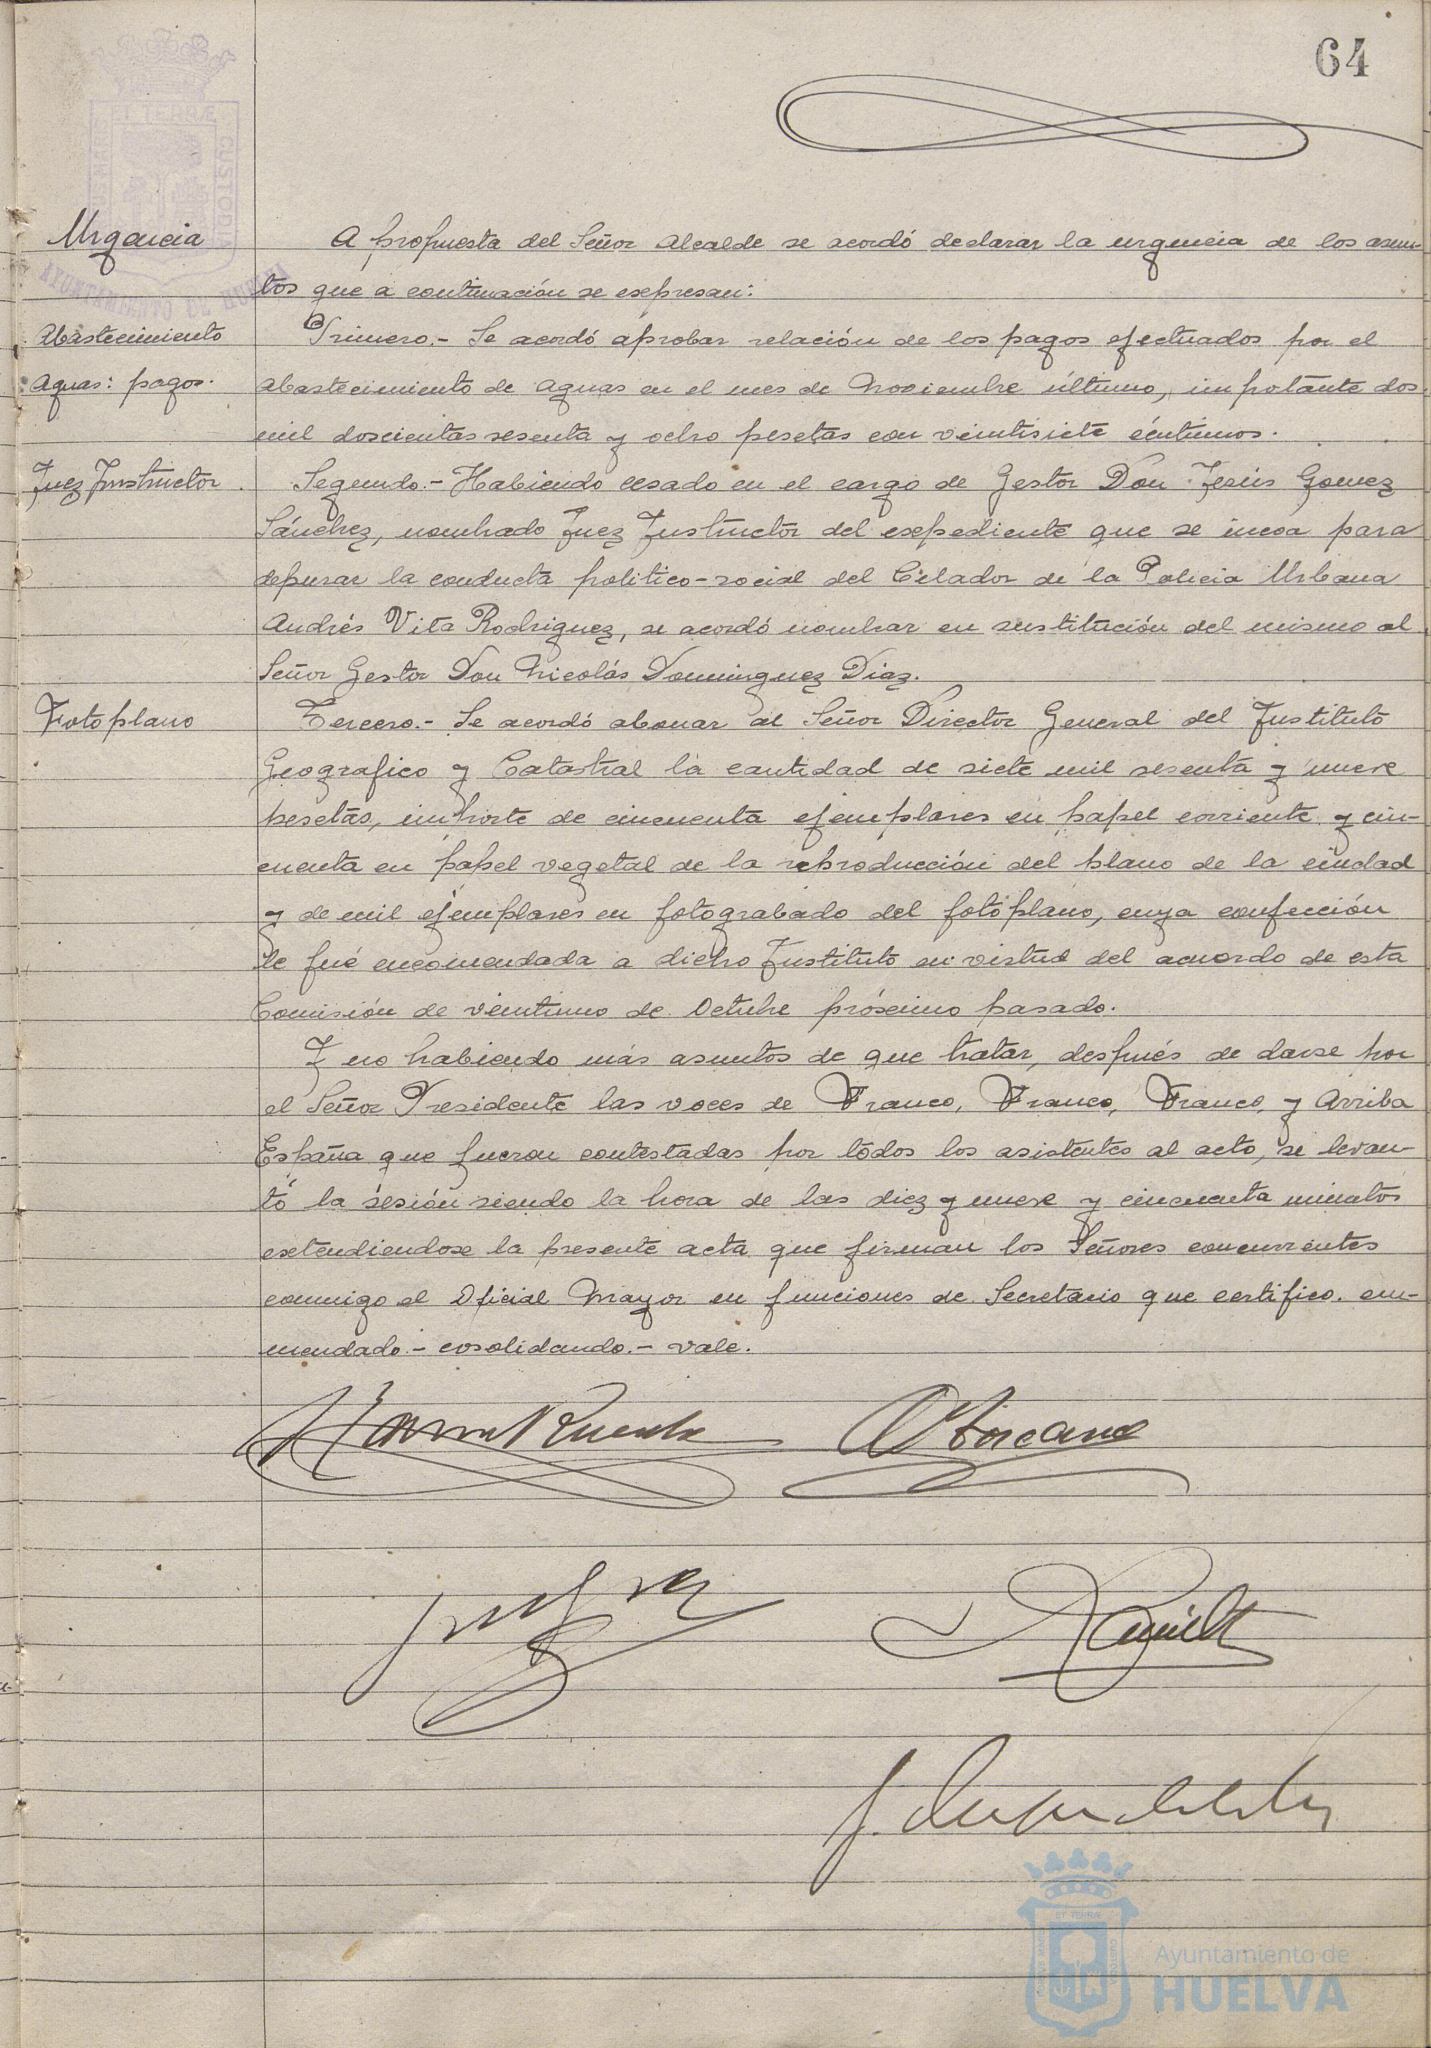 64
Urgencia
A propuesta del Señor Alcalde se acordó declarar la urgencia de los asun-
tos que a continuación se expresan:
Abastecimiento
Aguas: pagos.
Primero.- Se acordó aprobar relación de los pagos efectuados por el
abastecimiento de aguas en el mes de Noviembre último, importante dos
mil doscientas sesenta y ocho pesetas con veintisiete céntimos.
Juez Instructor
Segundo.- Habiendo cesado en el cargo de Gestor Don Jesús Gomez
Sánchez, nombrado Juez Instructor del expediente que se incoa para
depurar la conducta politico-social del Celador de la Policia Urbana
Andrés Vita Rodriguez, se acordó nombrar en sustitución del mismo al
Señor Gestor Don Nicolás Dominguez Diaz.
Fotoplano
Tercero.- Se acordó abonar al Señor Director General del Instituto
Geografico y Catastral la cantidad de siete mil sesenta y nueve
pesetas, importe de cincuenta ejemplares en papel corriente y cin-
cuenta en papel vegetal de la reproducción del plano de la ciudad
y de mil ejemplares en fotograbado del fotoplano, cuya confección
le fué encomendada a dicho Instituto en virtud del acuerdo de esta
Comisión de veintiuno de Octubre próximo pasado.
Y no habiendo más asuntos de que tratar, después de darse por
el Señor Presidente las voces de Franco, Franco, Franco, y Arriba
España que fueron contestadas por todos los asistentes al acto, se levan-
tó la sesión siendo la hora de las diez y nueve y cincuenta minutos
extendiendose la presente acta que firman los Señores concurrentes
conmigo el Oficial Mayor en funciones de Secretario que certifico. en-
mendado.- cosolidando.- vale.
ET TERRÆ CUSTODIA
AYUNTAMIENTO DE HUELVA
Ayuntamiento de
HUELVA